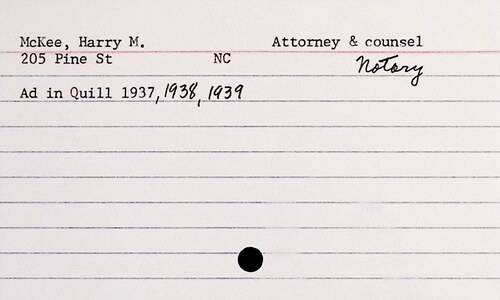 McKee, Harry M. Attorney & counsel
205 Pine St NC Notary
Ad in Quill 1937, 1938, 1939